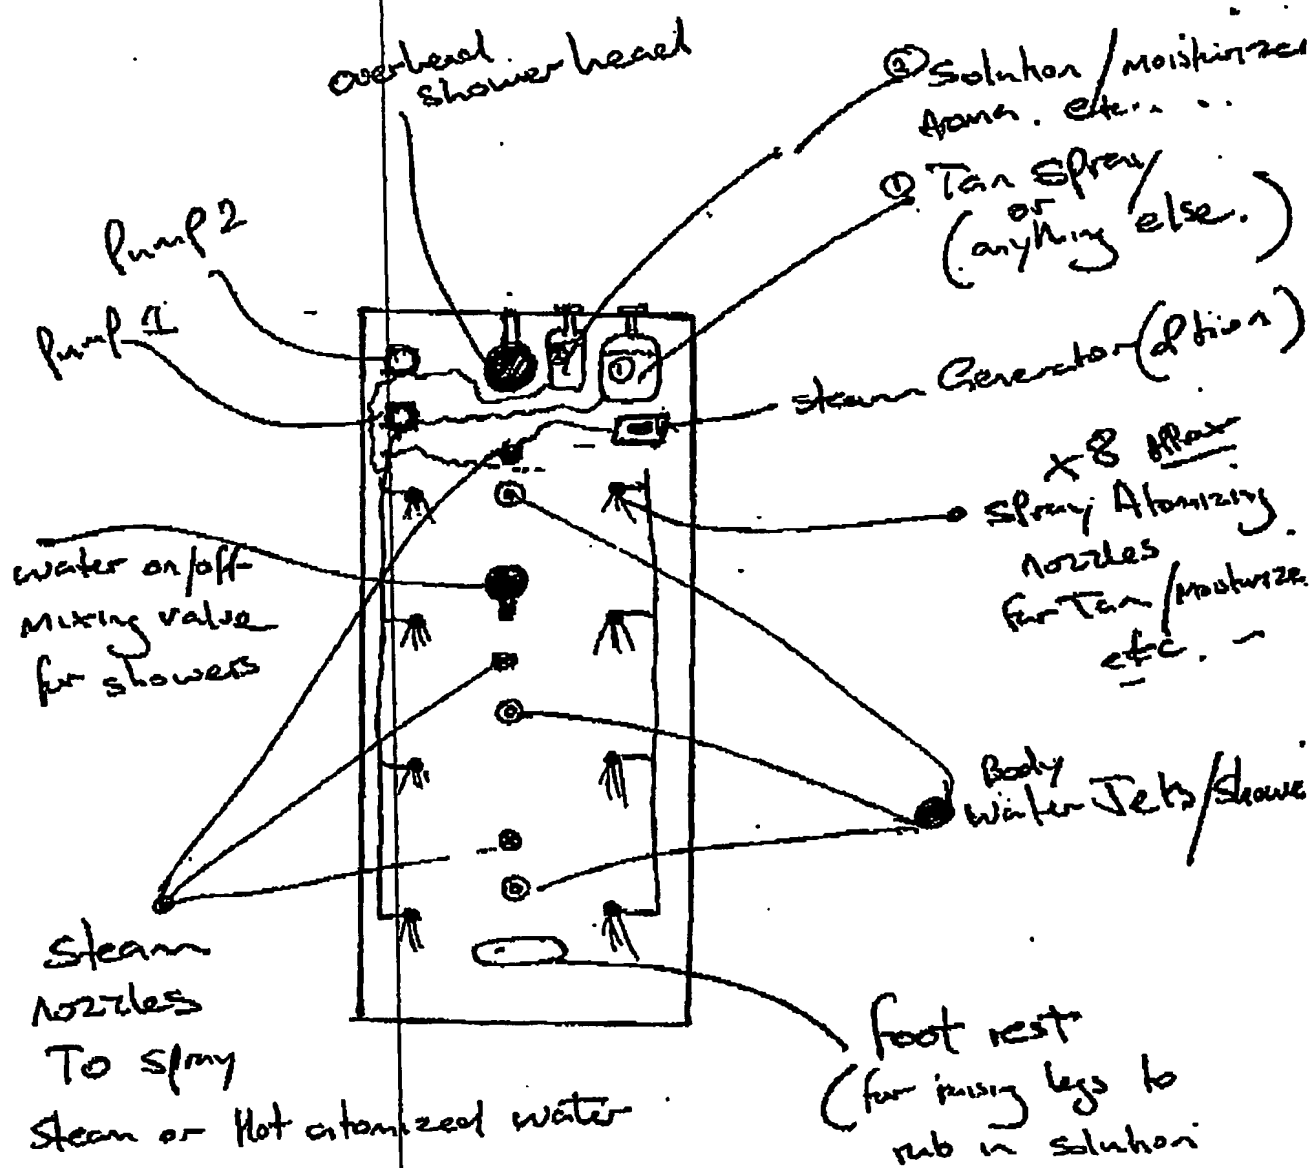 overhead
shower head
② Solution / Moisturizer
Aroma. etc...
① Tan Spray /
or
(anything else.)
Pump 2
Pump 1
②
①
Steam Generator (option)
x 8
Spray Atomizing
nozzles
for Tan / Moisturize
etc.
water on/off
mixing valve
for showers
Body
water Jets / Showe
Steam
nozzles
To spray
Steam or Hot atomized water
foot rest
(for raising legs to
rub in solution